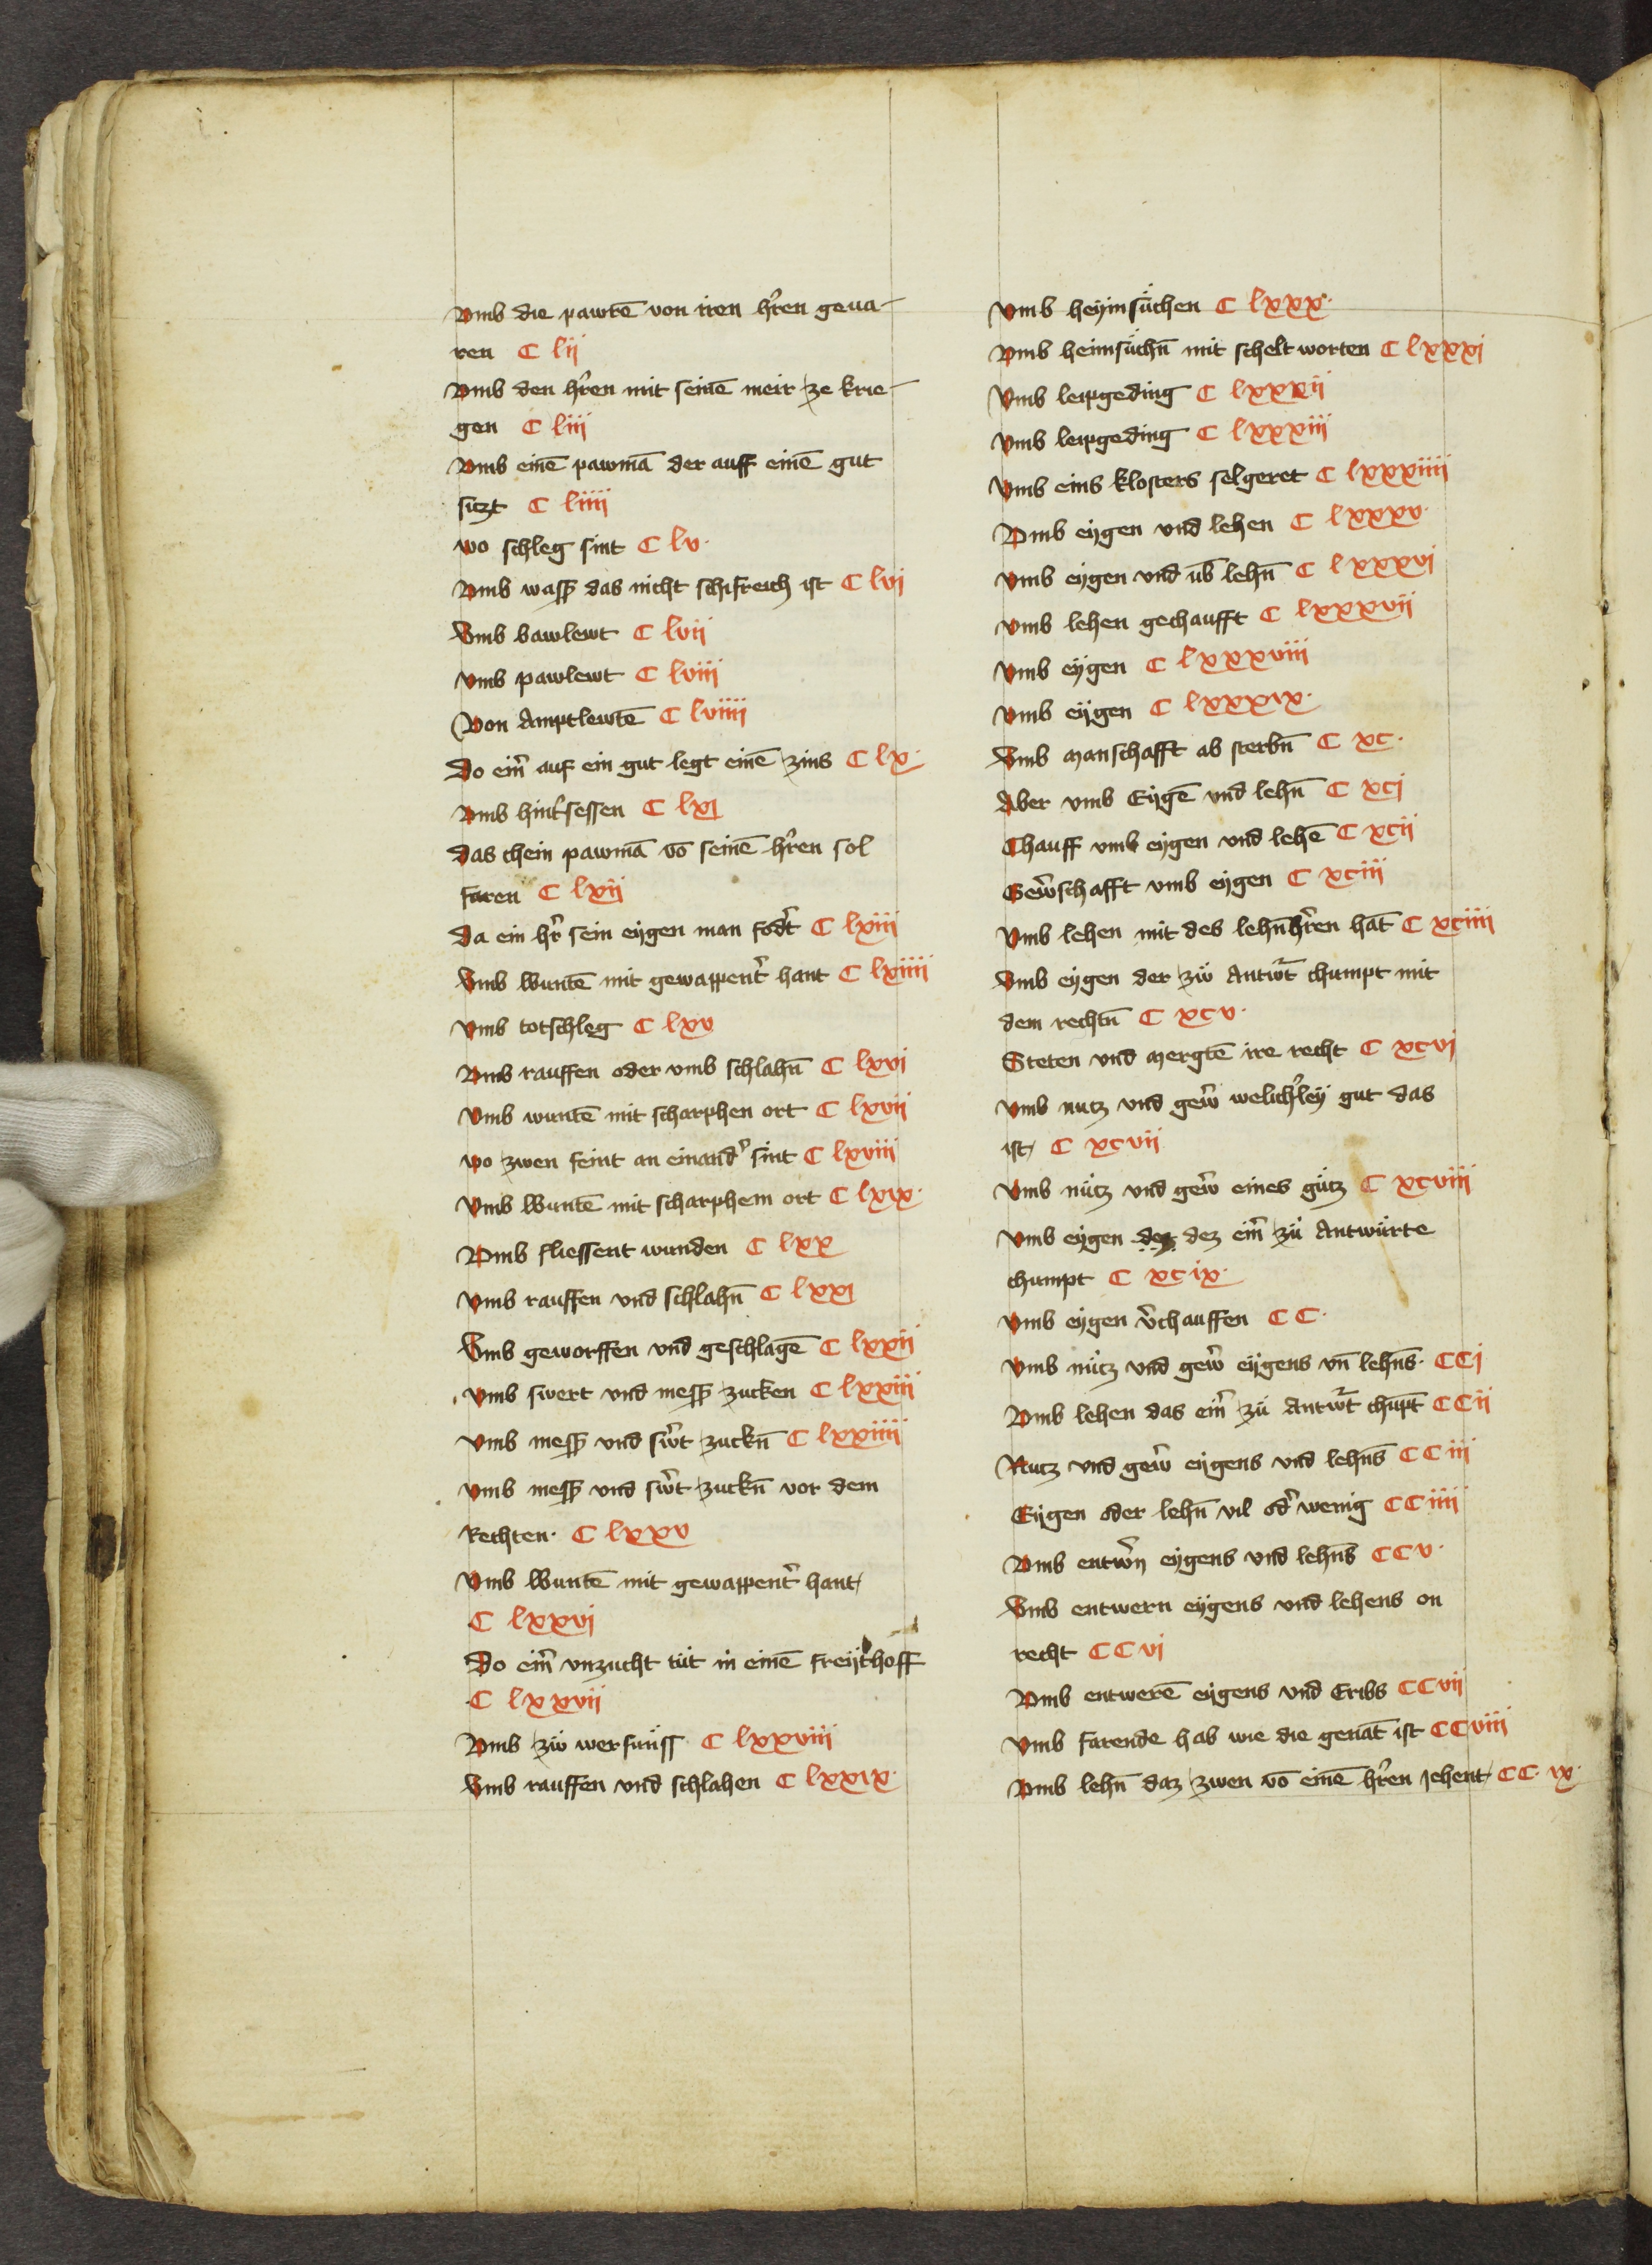 Vmb die pawrē von iren hr̄en geua-
ren C lij
Vmb den hr̄en mit seinē meir ze krie-
gen C liij
Vmb einē pawmā der auff einē gut
siczt C liiij
wo schleg sint C lv·
Vmb wass̄ das nicht schifreich ist C lvj
Vmb bawlewt C lvij
Vmb pawlewt C lviij
Von Amptlewtē C lviiij
Do ein̄ auf ein gut legt einē zins C lx·
Vmb hint̄sessen C lxj
Das chein pawmā vō seinē hr̄en sol
faren C lxij
Da ein hr̄ sein eygen man fodt̄ C lxiij
Vmb wuntē mit gewappent̄ hant C lxiiij
Vmb totschleg C lxv
Vmb rauffen oder vmb schlahn̄ C lxvj
Vmb wuntē mit scharphen ort C lxvij
wo zwen feint an einand̄ sint C lxviij
Vmb wuntē mit scharphem ort C lxix·
Vmb fliessent wunden C lxx
Vmb rauffen vnd schlahn̄ C lxxj
Vmb geworffen vnd geschlagē C lxxij
Vmb swert vnd mess̄ zucken C lxxiij
Vmb mess̄ vnd sw̄t zuckn̄ C lxxiiij
Vmb mess̄ vnd sw̄t zuckn̄ vor dem
Rechten· C lxxv
Vmb wuntē mit gewappent̄ hant
C lxxvj
Do ein̄ vnzucht tüt in einē freythoff
C lxxvij
Vmb zẅ werfnüss C lxxviij
Vmb rauffen vnd schlahen C lxxix·
Vmb heymsüchen C lxxx·
Vmb heimsüchn̄ mit scheltworten C lxxxj
Vmb leipgeding C lxxxij
Vmb leipgeding C lxxxiij
Vmb eins klosters selgeret C lxxxiiij
Vmb eygen vnd lehen C lxxxv·
Vmb eygen vnd üb̄ lehn̄ C lxxxvj
Vmb lehen gechaufft C lxxxvij
Vmb eygen C lxxxviij
Vmb eygen C lxxxix·
Vmb manschafft ab sterbn̄ C xc·
Aber vmb Eygē vnd lehn̄ C xcj
Chauff vmb eygen vnd lehē C xcij
Gew̄schafft vmb eygen C xciij
Vmb lehen mit des lehn̄hr̄en hāt C xciiij
Vmb eygen der zẅ Antw̄t chumpt mit
dem rechtn̄ C xcv·
Steten vnd mergtē ire recht C xcvj
Vmb nutz vnd gew̄ welich̄ley gut das
ist C xcvij
Vmb nütz vnd gew̄ eines gütz C xcviij
Vmb eygen dez dez ein̄ zü Antwürte
chumpt C xcix·
Vmb eygen v̄chauffen CC·
Vmb nütz vnd gew̄ eygens vn̄ lehn̄s· CCj
Vmb lehen das ein̄ zü Antw̄t chūpt CCij
Nutz vnd gew̄ eygens vnd lehn̄s CCiij
Eygen oder lehn̄ vil od̄ wenig CCiiij
Vmb entw̄n eygens vnd lehn̄s CCv·
Vmb entwern eygens vnd lehens on
recht CCvj
Vmb entwerē eygens vnd Eribs CCvij
Vmb farende hab wie die genāt ist CCviij
Vmb lehn̄ daz zwen vō einē hr̄en jehent CC·ix·